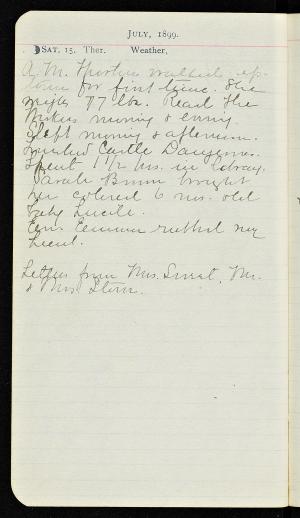 JULY, 1899.
SAT. 15. Ther. Weather.
A.M. walked up-
town for first time. She
weighs 87 lbs. Read The
morning & evning.
Slept morning & afternoon.
Finished Castle Dangerous.
Spent 1 1/2 hrs. in library.
Sarah Brown brought
her colored 6 mos. old
baby Lucile.
Eve. Emma rubbed my
head.
Letters from Mrs. Sweat, Mr.
& Mrs. Storer.